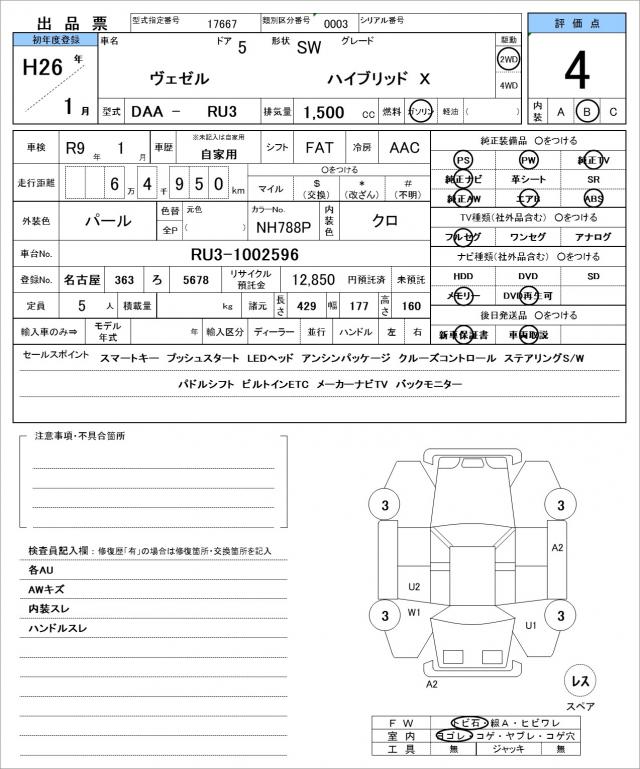 出品票 型式指定番号 17667 類別区分番号 0003 シリアル番号
初年度登録 車名 ドア 5 形状 SW グレード 駆動 評価点
H26 年 ヴェゼル ハイブリッド X 2WD 4
4WD
1 月 型式 DAA － RU3 排気量 1,500 cc 燃料 ガソリン 軽油 ( ) 内装 A B C
車検 R9 年 1 月 車歴 ※未記入は自家用 自家用 シフト FAT 冷房 AAC 純正装備品 〇をつける
PS PW 純正TV
走行距離 6 万 4 千 9 5 0 km 〇をつける 純正ナビ 革シート SR
マイル $ (交換) * (改ざん) # (不明) 純正AW エアB ABS
外装色 パール 色替 元色 全P カラーNo. NH788P 内装色 クロ TV種類(社外品含む) 〇をつける
フルセグ ワンセグ アナログ
車台No. RU3-1002596 ナビ種類(社外品含む) 〇をつける
登録No. 名古屋 363 ろ 5678 リサイクル預託金 12,850 円預託済 未預託 HDD DVD SD
定員 5 人 積載量 kg 諸元 長さ 429 幅 177 高さ 160 メモリー DVD再生可
後日発送品 〇をつける
輸入車のみ⇒ モデル年式 年 輸入区分 ディーラー 並行 ハンドル 左 右 新車保証書 車両取説
セールスポイント スマートキー プッシュスタート LEDヘッド アンシンパッケージ クルーズコントロール ステアリングS/W
パドルシフト ビルトインETC メーカーナビTV バックモニター
注意事項・不具合箇所
検査員記入欄：修復歴「有」の場合は修復箇所・交換箇所を記入
各AU
AWキズ
内装スレ
ハンドルスレ
3 3
A2
U2
3 W1 U1 3
A2
レス
スペア
FW トビ石・線A・ヒビワレ
室内 ヨゴレ・コゲ・ヤブレ・コゲ穴
工具 無 ジャッキ 無